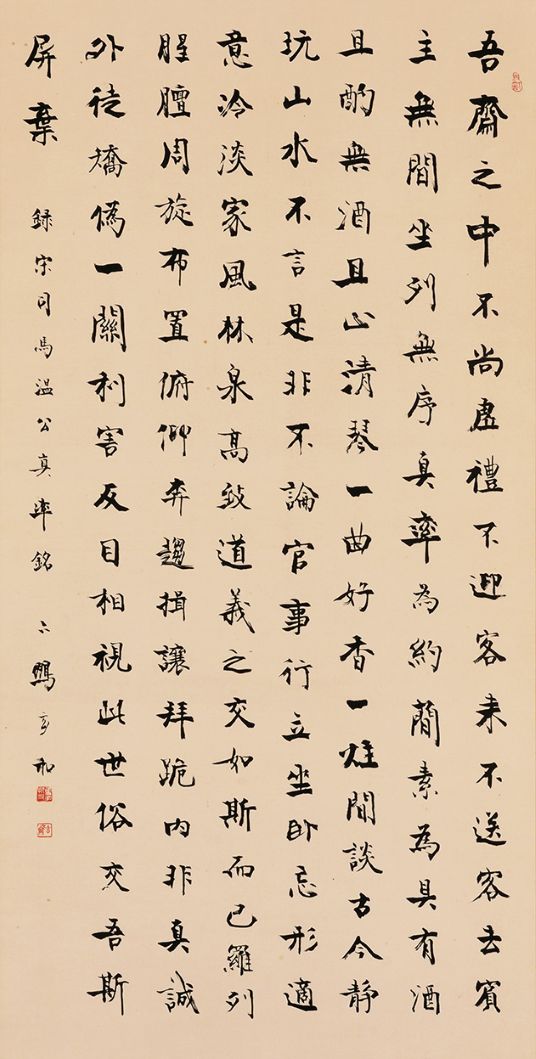 吾齋之中不尚虛禮不迎客来不送客去賓
主無間坐列無序真率為約簡素為具有酒
且酌無酒且止清琴一曲好香一炷閒談古今静
玩山水不言是非不論官事行立坐卧忘形適
意冷淡家風林泉高致道義之交如斯而已羅列
腥膻周旋布置俯仰奔趨揖讓拜跪内非真誠
外徒矯偽一關利害反目相視此世俗交吾斯
屏棄
録宋司馬温公真率銘